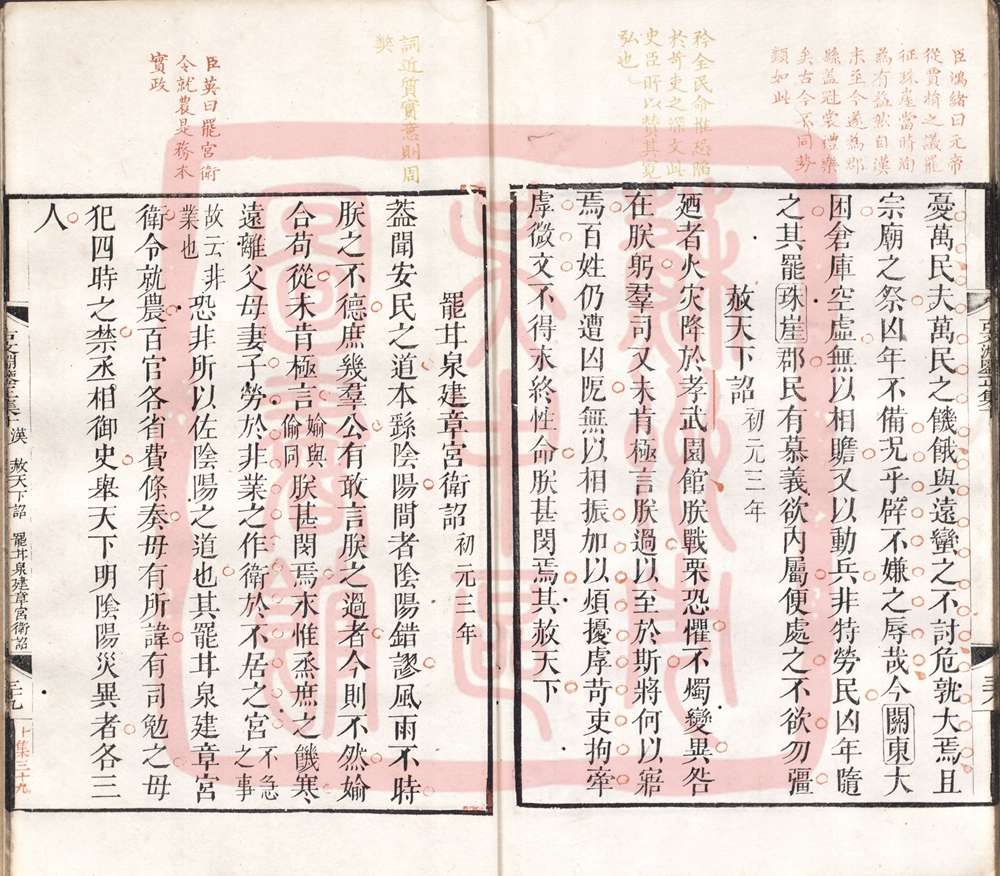 臣鴻緒曰元帝
從賈捐之議罷
征珠崖當時殉
為有益然自漢
末至今遂為郡
縣蓋冠裳禮樂
矣古今不同勢
類如此
矜全民命惟恐陷
於苛吏之深文此
史臣所以贊其寬
弘也
憂萬民夫萬民之饑餓與遠蠻之不討危孰大焉且
宗廟之祭凶年不備況乎辟不嫌之辱哉今關東大
困倉庫空虛無以相贍又以動兵非特勞民凶年隨
之其罷珠崖郡民有慕義欲內屬便處之不欲勿彊
赦天下詔初元三年
廼者火災降於孝武園館朕戰栗恐懼不燭變異咎
在朕躬羣司又未肯極言朕過以至於斯將何以寤
焉百姓仍遭凶阨無以相振加以煩擾虖苛吏拘牽
虖微文不得永終性命朕甚閔焉其赦天下
詞近質實意則周
摯
臣英曰罷宮衛
令就農是務本
實政
罷甘泉建章宮衛詔初元三年
蓋聞安民之道本繇陰陽間者陰陽錯謬風雨不時
朕之不德庶幾羣公有敢言朕之過者今則不然媮
合苟從未肯極言媮與偷同朕甚閔焉永惟烝庶之饑寒
遠離父母妻子勞於非業之作衛於不居之宮不急之事
故云非業也恐非所以佐陰陽之道也其罷甘泉建章宮
衛令就農百官各省費條奏毋有所諱有司勉之毋
犯四時之禁丞相御史舉天下明陰陽災異者各三
人
漢 赦天下詔 罷甘泉建章宮衛詔
三十九
十集三十九